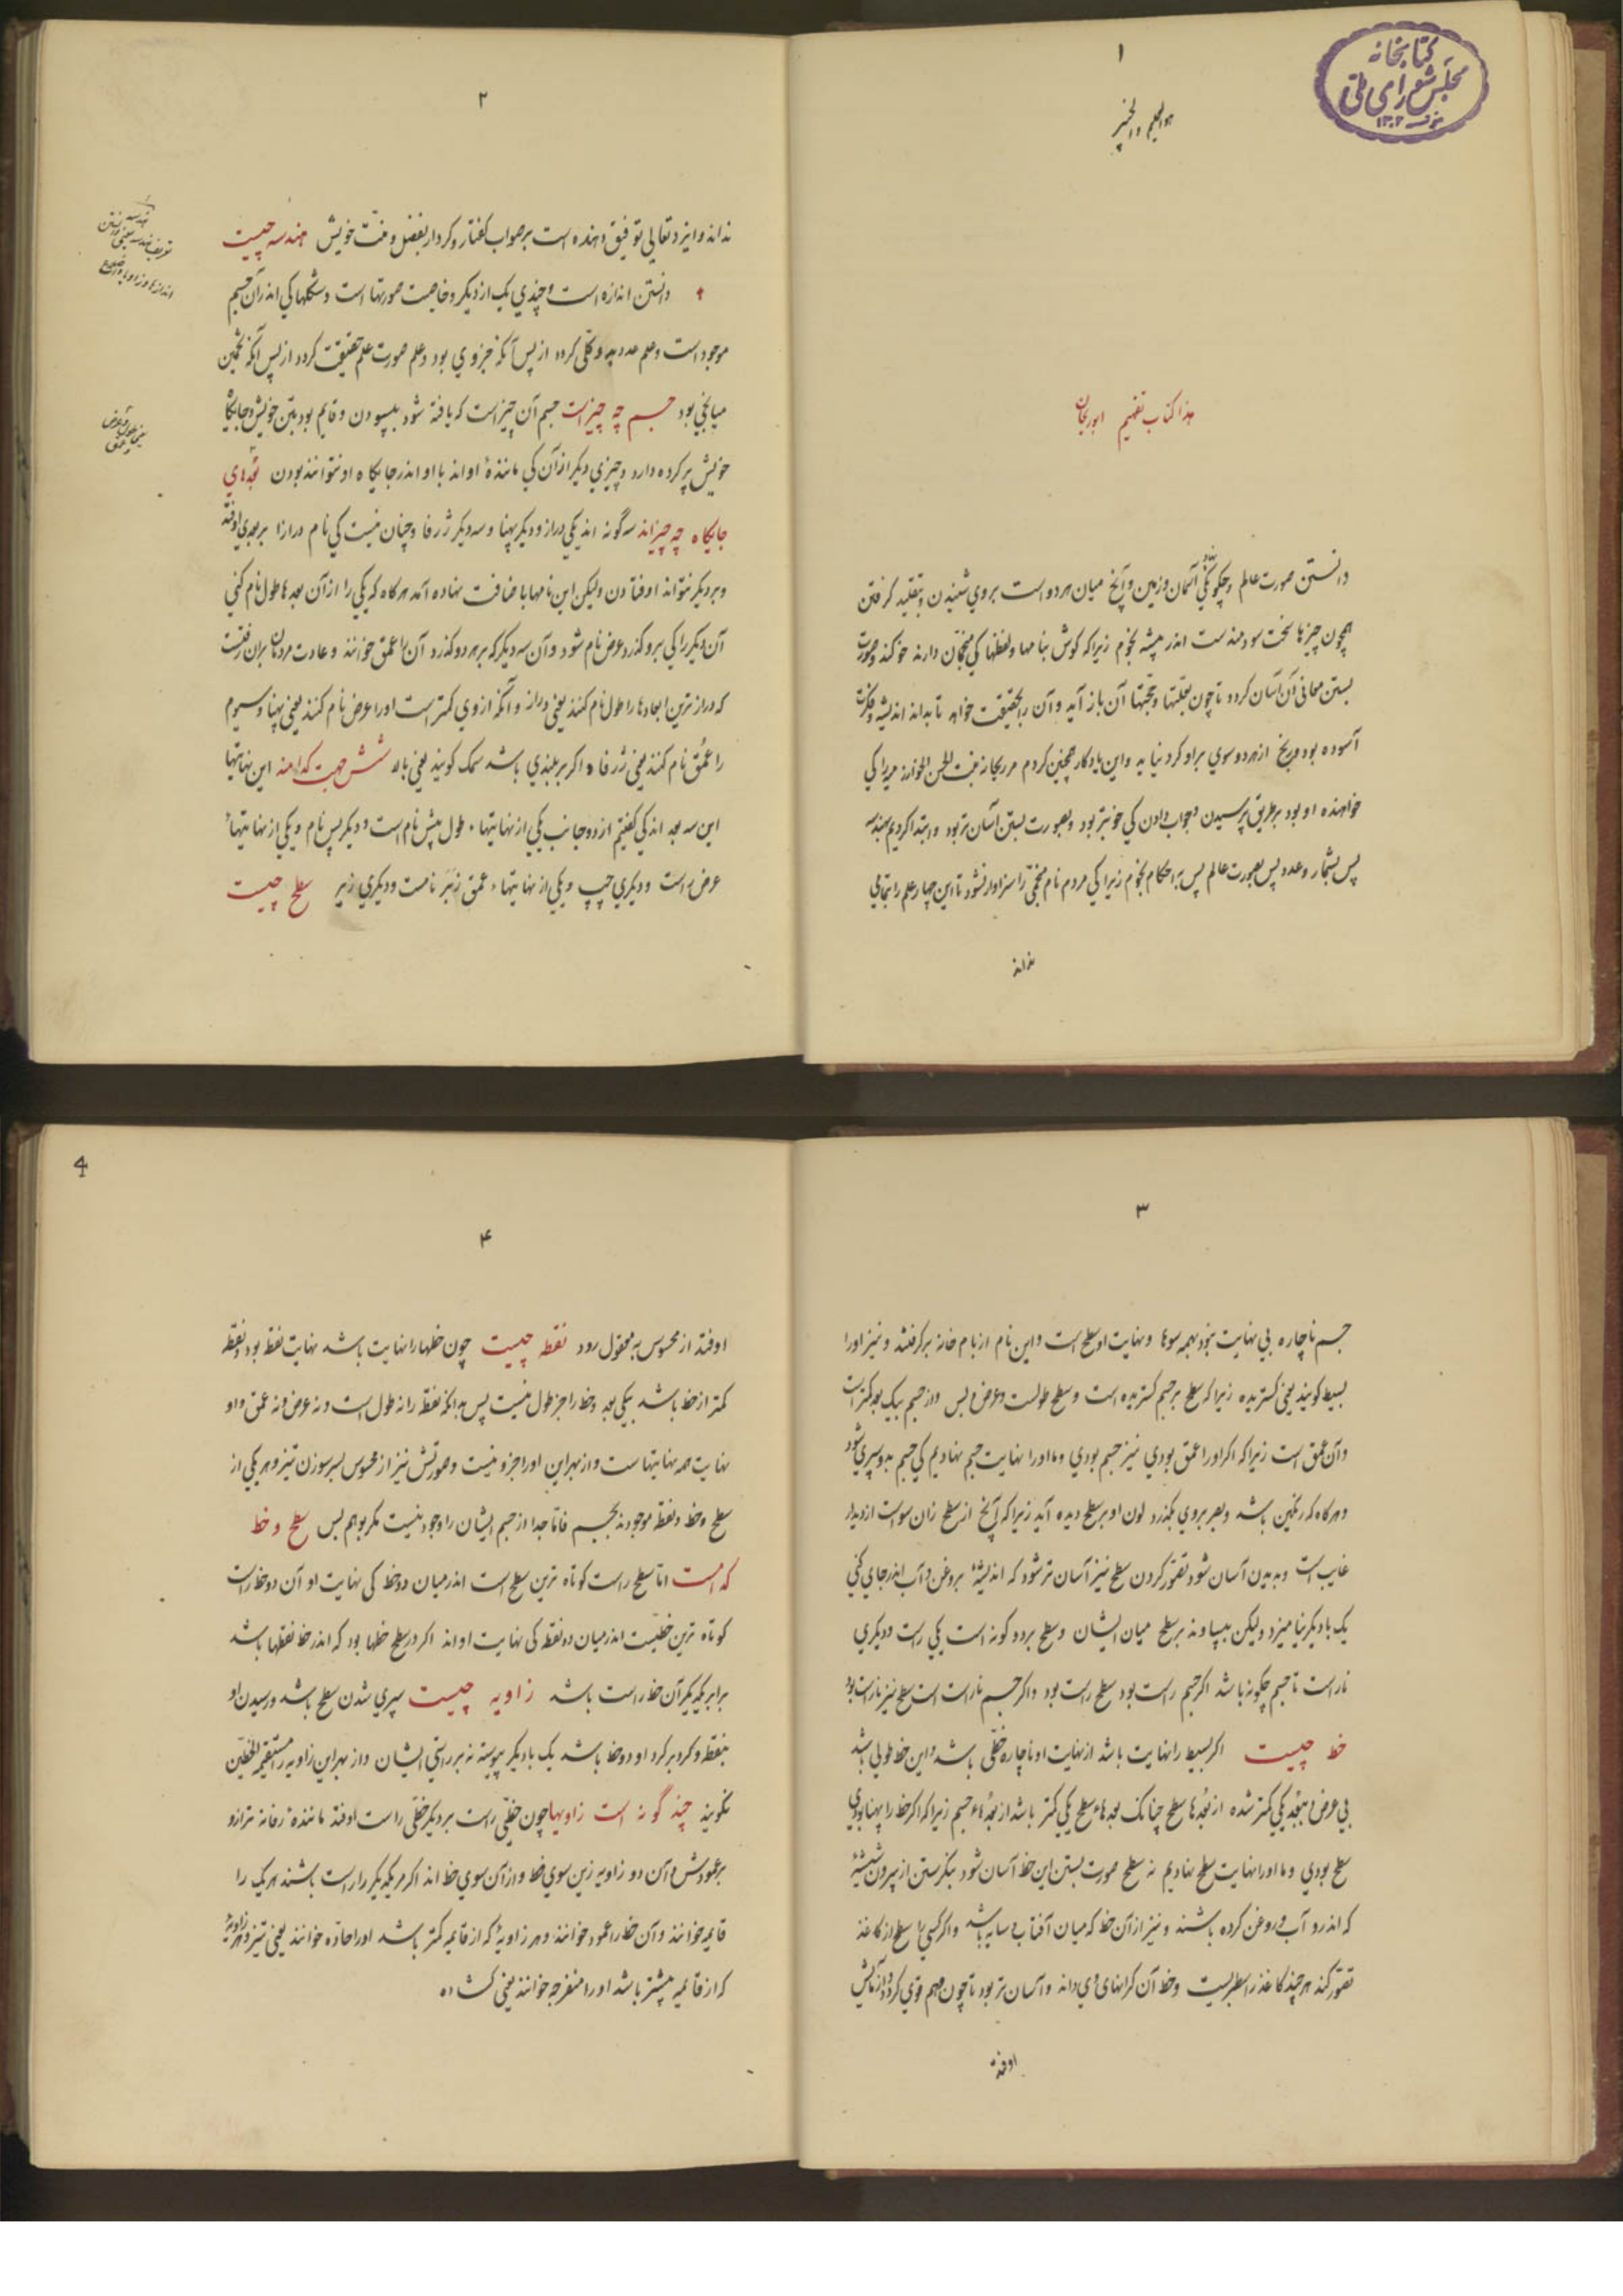 ۱
کتابخانه
مجلس شورای ملی
۱۳۰۲
هو العلیم و الخبیر
هذا کتاب تفهیم ابوریحان
دانستن صورت عالم و چگونگی نهاد آسمان و زمین و آنچ میان هر دو است بروی شنیدن و بتقلید گرفتن
همچون چیزها سخت سودمندست اندر پیشه نجوم زیراکه گوش بنامها و لفظها کی منجمان دارند خو کند و صورت
بستن معانی آن آسان گردد تا چون بعلتها و حجتها آن باز آید و آن را بحقیقت خواهد تا بداند اندیشه و فکرت
آسوده بود و رنج از هر دو سوی بر او گرد نیاید و این یادگار همچنین کردم مر ریحانه بنت الحسن الخوارزمیه را کی
خواهنده او بود بر طریق پرسیدن و جواب دادن کی خوبتر بود و صورت بستن آسان تر بود و ابتدا کردیم بهندسه
پس بشمار و عدد پس بصورت عالم پس باحکام نجوم زیرا کی مردم نام منجمی را سزاوار نشود تا این چهار علم را بتمامی
نداند
۲
نداند و ایزد تعالی توفیق دهنده است بر صواب گفتار و کردار بفضل و منت خویش هندسه چیست
دانستن اندازه است و چندی یک از دیگر و خاصیت صورتها است و شکلها کی اندر آن جسم
موجود است و علم عدد بدو کلی گردد از پس آنکه جزوی بود و علم صورت علم حقیقت گردد از پس آنکه تخمین
میانجی بود جسم چه چیز است جسم آن چیز است که یافته شود بپسودن و قایم بود بتن خویش و جایگاه
خویش پر کرده دارد و چیزی دیگر از آن کی مانندهٔ او اند با او اندر جایگاه او نتوانند بودن بُعدهای
جایگاه چه چیزاند سه گونه اند یکی دراز و دیگر پهنا و سه دیگر ژرفا و چنان نیست کی نام درازا بر بعدی اوفتد
و بر دیگر نتواند اوفتادن ولیکن این نامها باضافت نهاده آمد هرگاه که یکی را از آن بعدها طول نام کنی
آن دیگر را کی برو گذرد عرض نام شود و آن سه دیگر که بر هر دو گذرد آن را عمق خوانند و عادت مردمان بران رفتست
که درازترین ابعادها را طول نام کنند یعنی دراز و آنکه از وی کمتر است او را عرض نام کنند یعنی پهنا و سیوم
را عُمق نام کنند یعنی ژرفا و اگر بر بلندی باشد سمک گویند یعنی بالا شش جهت کدامند این نهایتها
این سه بعد اند کی گفتیم از دو جانب یکی از نهایتهاء طول پیش نام است و دیگر پس نام و یکی از نهایتهاء
عرض راست و دیگری چپ و یکی از نهایتهاء عمق زبَر نامست و دیگری زیر سطح چیست
۳
جسم ناچاره بی نهایت نبود بهمه سوها و نهایت او سطح است و این نام از بام خانه برگرفتند و نیز او را
بسیط گویند یعنی گستریده زیرا که سطح بر جسم گستریده است و سطح طولست و عرض و بس و از جسم بیک بعد کمتر است
و آن عمق است زیرا که اگر او را عمق بودی نیز جسم بودی و ما او را نهایت جسم نهادیم کی جسم بدو سپری شود
و هرگاه که رنگین باشد و بصر بروی بگذرد لون او بر سطح دیده آید زیرا که آنچ از سطح زان سو است از دیدار
غایب است و بدیدن آسان شود تصور کردن سطح نیز آسان تر شود که اندیشهٔ بروغن و آب اندر جای کنی
یک با دیگر نیامیزد ولیکن بپساوند بر سطح میان ایشان و سطح بر دو گونه است یکی راست و دیگری
ناراست تا جسم چگونه باشد اگر جسم راست بود سطح راست بود و اگر جسم ناراست است سطح نیز ناراست بود
خط چیست اگر بسیط را نهایت باشد از نهایت او ناچاره خطی باشد و این خط طولی باشد
بی عرض ببُعد یکی کمتر شده از بُعدها سطح چنانک بعدهاء سطح یکی کمتر باشد از بُعدهاء جسم زیرا که اگر خط را پهنا بودی
سطح بودی و ما او را نهایت سطح نهادیم نه سطح صورت بستن این خط آسان شود بنگرستن از بیرون شیشهٔ
که اندرو آب و روغن کرده باشند و نیز از آن خط که میان آفتاب و سایه باشد و اگر کسی را سطح از کاغذ
تصور کند هر چند کاغذ را سطبریست و خط آن کرانهای وی داند و آسان تر بود تا چون وهم قوی گردد و از مالش
اوفتد
4
۴
اوفتد از محسوس به معقول رود نقطه چیست چون خطها را نهایت باشد نهایت نقطه بود و نقطه
کمتر از خط باشد بیکی بعد و خط را جز طول نیست پس بدانکه نقطه را نه طول است و نه عرض و نه عمق و او
نهایت همه نهایتهاست و از بهر این او را جزو نیست و صورتش نیز از محسوس سر سوزن تیز و هر یکی از
سطح و خط و نقطه موجودند بجسم فاما جدا از جسم ایشان را وجود نیست مگر بوهم بس سطح و خط
که راست اما سطح راست کوتاه ترین سطح است اندر میان دو خط کی نهایت او آن دو خط راست
کوتاه ترین خطیست اندر میان دو نقطه کی نهایت او اند اگر در سطح خطها بود که اندر خط نقطها باشد
برابر یکدیگر آن خط راست باشد زاویه چیست سپری شدن سطح باشد و رسیدن او
بنقطه و گرد بر گرد او دو خط باشد یک با دیگر پیوسته نه بر راستی ایشان و از بهر این زاویه را مستقیم الخطین
بگویند چند گونه است زاویها چون خطی راست بر دیگر خطی راست اوفتد مانندهٔ زفانه ترازو
بر عمودش و آن دو زاویه زین سوی خط و از آن سوی خط اند اگر مر یکدیگر را راست باشند هر یک را
قائمه خوانند و آن خط را عمود خوانند و هر زاویهٔ که از قائمه کمتر باشد او را حاده خوانند یعنی تیز و هر زاویهٔ
که از قائمه بیشتر باشد او را منفرجه خوانند یعنی گشاده